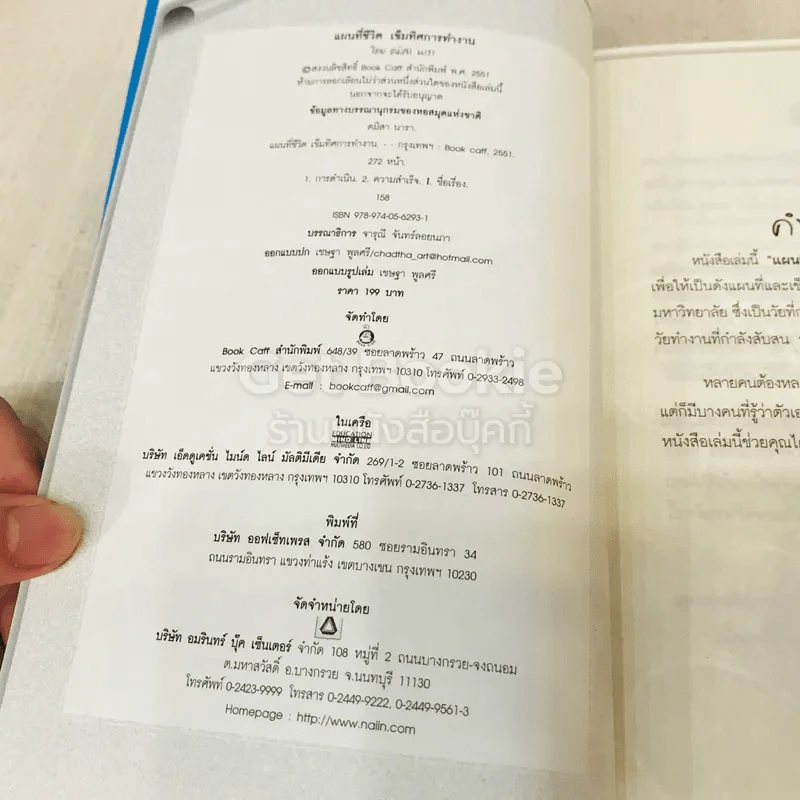 แผนที่ชีวิต เข็มทิศการทำงาน
โดย คมิสา นารา
@สงวนลิขสิทธิ์ Book Caff สำนักพิมพ์ พ.ศ. 2551
ห้ามการลอกเลียนไม่ว่าส่วนหนึ่งส่วนใดของหนังสือเล่มนี้
นอกจากจะได้รับอนุญาต
ข้อมูลทางบรรณานุกรมของหอสมุดแห่งชาติ
คมิสา นารา.
แผนที่ชีวิต เข็มทิศการทำงาน. - - กรุงเทพฯ : Book caff, 2551.
272 หน้า.
1. การดำเนิน. 2. ความสำเร็จ. I. ชื่อเรื่อง.
158
ISBN 978-974-05-6293-1
บรรณาธิการ จารุณี จันทร์ลอยนภา
ออกแบบปก เชษฐา พูลศรี/chadtha_art@hotmail.com
ออกแบบรูปเล่ม เชษฐา พูลศรี
ราคา 199 บาท
จัดทำโดย
Book Caff สำนักพิมพ์ 648/39 ซอยลาดพร้าว 47 ถนนลาดพร้าว
แขวงวังทองหลาง เขตวังทองหลาง กรุงเทพฯ 10310 โทรศัพท์ 0-2933-2498
E-mail : bookcaff@gmail.com
ในเครือ
EDUCATION
MIND LINE
MULTIMEDIA CO.,LTD.
บริษัท เอ็ดดูเคชั่น ไมน์ด ไลน์ มัลติมีเดีย จำกัด 269/1-2 ซอยลาดพร้าว 101 ถนนลาดพร้าว
แขวงวังทองหลาง เขตวังทองหลาง กรุงเทพฯ 10310 โทรศัพท์ 0-2736-1337 โทรสาร 0-2736-1337
พิมพ์ที่
บริษัท ออฟเซ็ทเพรส จำกัด 580 ซอยรามอินทรา 34
ถนนรามอินทรา แขวงท่าแร้ง เขตบางเขน กรุงเทพฯ 10230
จัดจำหน่ายโดย
บริษัท อมรินทร์ บุ๊ค เซ็นเตอร์ จำกัด 108 หมู่ที่ 2 ถนนบางกรวย-จงถนอม
ต.มหาสวัสดิ์ อ.บางกรวย จ.นนทบุรี 11130
โทรศัพท์ 0-2423-9999 โทรสาร 0-2449-9222, 0-2449-9561-3
Homepage : http://www.naiin.com
ร้านหนังสือบุ๊คกี้
หนังสือเล่มนี้ "แผน
เพื่อให้เป็นดังแผนที่และเข็
มหาวิทยาลัย ซึ่งเป็นวัยที่ก
วัยทำงานที่กำลังสับสน
หลายคนต้องหล
แต่ก็มีบางคนที่รู้ว่าตัวเอ
หนังสือเล่มนี้ช่วยคุณได